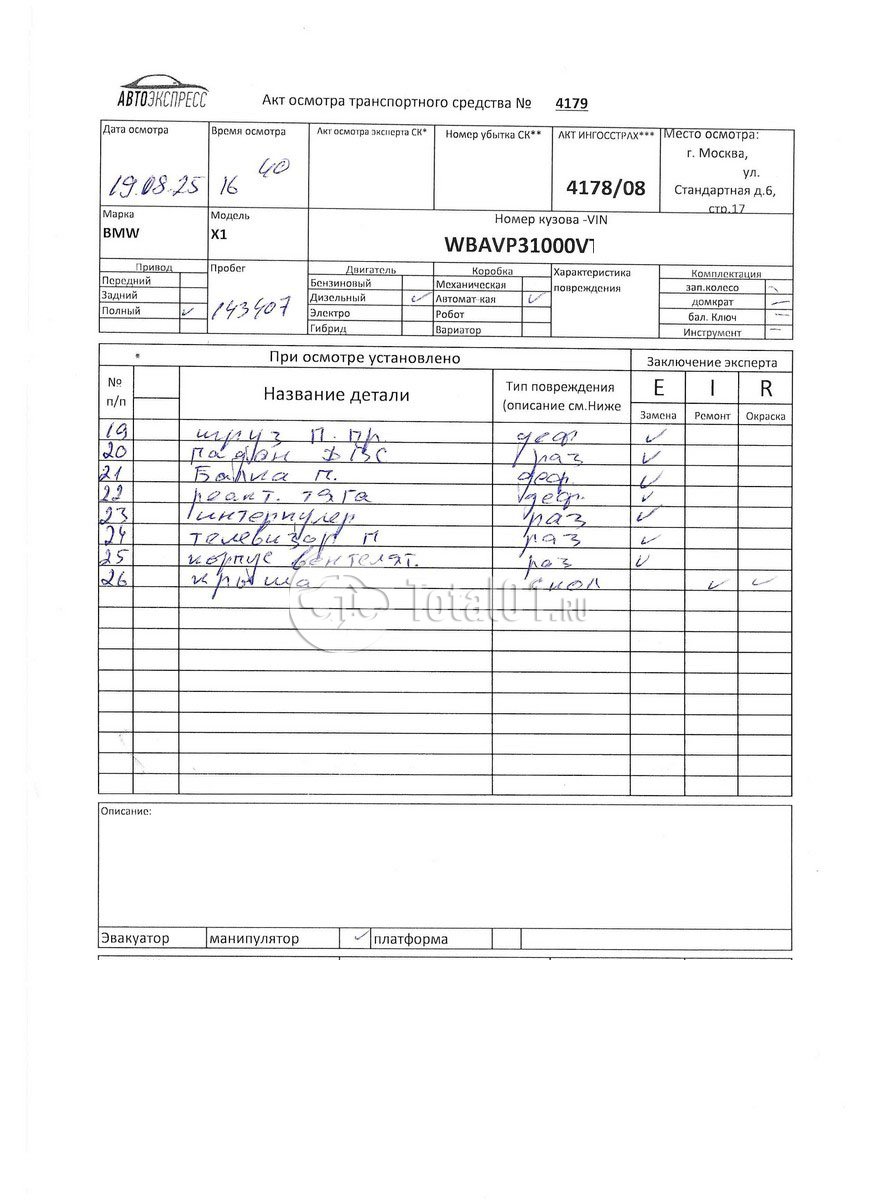 АВТОЭКСПРЕСС
Акт осмотра транспортного средства № 4179
Дата осмотра
19.08.25
Время осмотра
16 40
Акт осмотра эксперта СК*
Номер убытка СК**
АКТ ИНГОССТРАХ***
4178/08
Место осмотра:
г. Москва,
ул.
Стандартная д.6,
стр.17
Марка
BMW
Модель
X1
Номер кузова -VIN
WBAVP31000V
Привод
Передний
Задний
Полный ✓
Пробег
143407
Двигатель
Бензиновый
Дизельный ✓
Электро
Гибрид
Коробка
Механическая
Автомат-кая ✓
Робот
Вариатор
Характеристика
повреждения
Комплектация
зап.колесо
домкрат —
бал. Ключ —
Инструмент —
При осмотре установлено
Заключение эксперта
№
п/п
Название детали
Тип повреждения
(описание см.Ниже
E I R
Замена Ремонт Окраска
19 шруз п. пр деф ✓
20 ДВС раз ✓
21 Балка п. деф. ✓
22 реакт. тяга деф. ✓
23 интеркулер раз ✓
24 телевизор п раз ✓
25 корпус вентелят. раз ✓
26 крыша скол ✓ ✓
Total01.RU
Описание:
Эвакуатор манипулятор ✓ платформа